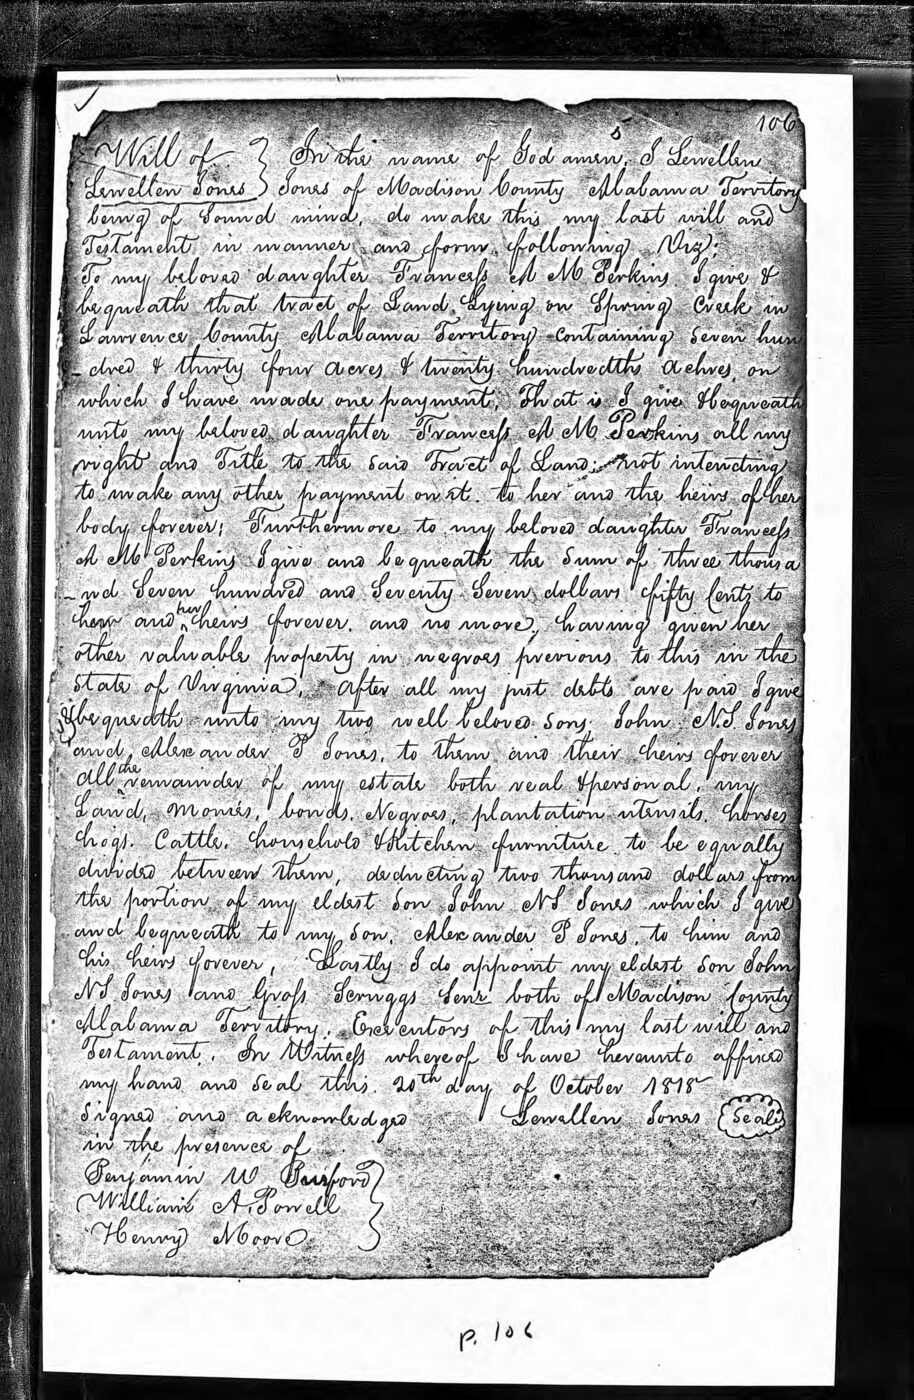 106
Will of } In the name of God amen, I Lewellen
Lewellen Jones } Jones of Madison County Alabama Territory
being of Sound mind, do make this my last will and
Testament in manner and form following Viz:
To my beloved daughter Francess A M Perkins I give &
bequeath that tract of Land Lying on Spring Creek in
Lawrence County Alabama Territory containing Seven hun
-dred & thirty four acres & twenty hundredths achres, on
which I have made one payment, That is I give & bequeath
unto my beloved daughter Francess A M Perkins all my
right and Title to the Said Tract of Land; not intending
to make any other payment on it. to her and the heirs of her
body forever; Furthermore to my beloved daughter Francess
A M Perkins I give and bequeath the Sum of three thousa
-nd Seven hundred and Seventy Seven dollars fifty Cents to
her and her heirs forever. and no more, having given her
other valuable property in negroes previous to this in the
State of Virginia, After all my just debts are paid I give
& bequeath unto my two well beloved Sons John N.S Jones
and Alexander P Jones, to them and their heirs forever
All the remainder of my estate both real & personal, my
Land, Monies, bonds, Negroes, plantation utensils, horses
hogs. Cattle, household & Kitchen furniture to be equally
divided between them, deducting two thousand dollars from
the portion of my eldest Son John NS Jones which I give
and bequeath to my Son, Alexander P Jones, to him and
his heirs forever, Lastly I do appoint my eldest Son John
NS Jones and Gross Scruggs Senr both of Madison County
Alabama Territory, Executors of this my last will and
Testament. In Witness whereof I have hereunto affixed
my hand and Seal this 20th day of October 1818
Signed and acknowledged Lewellen Jones Seal
in the presence of
Benjamin W Burford
William A. Powell
Henry Moore
p. 106